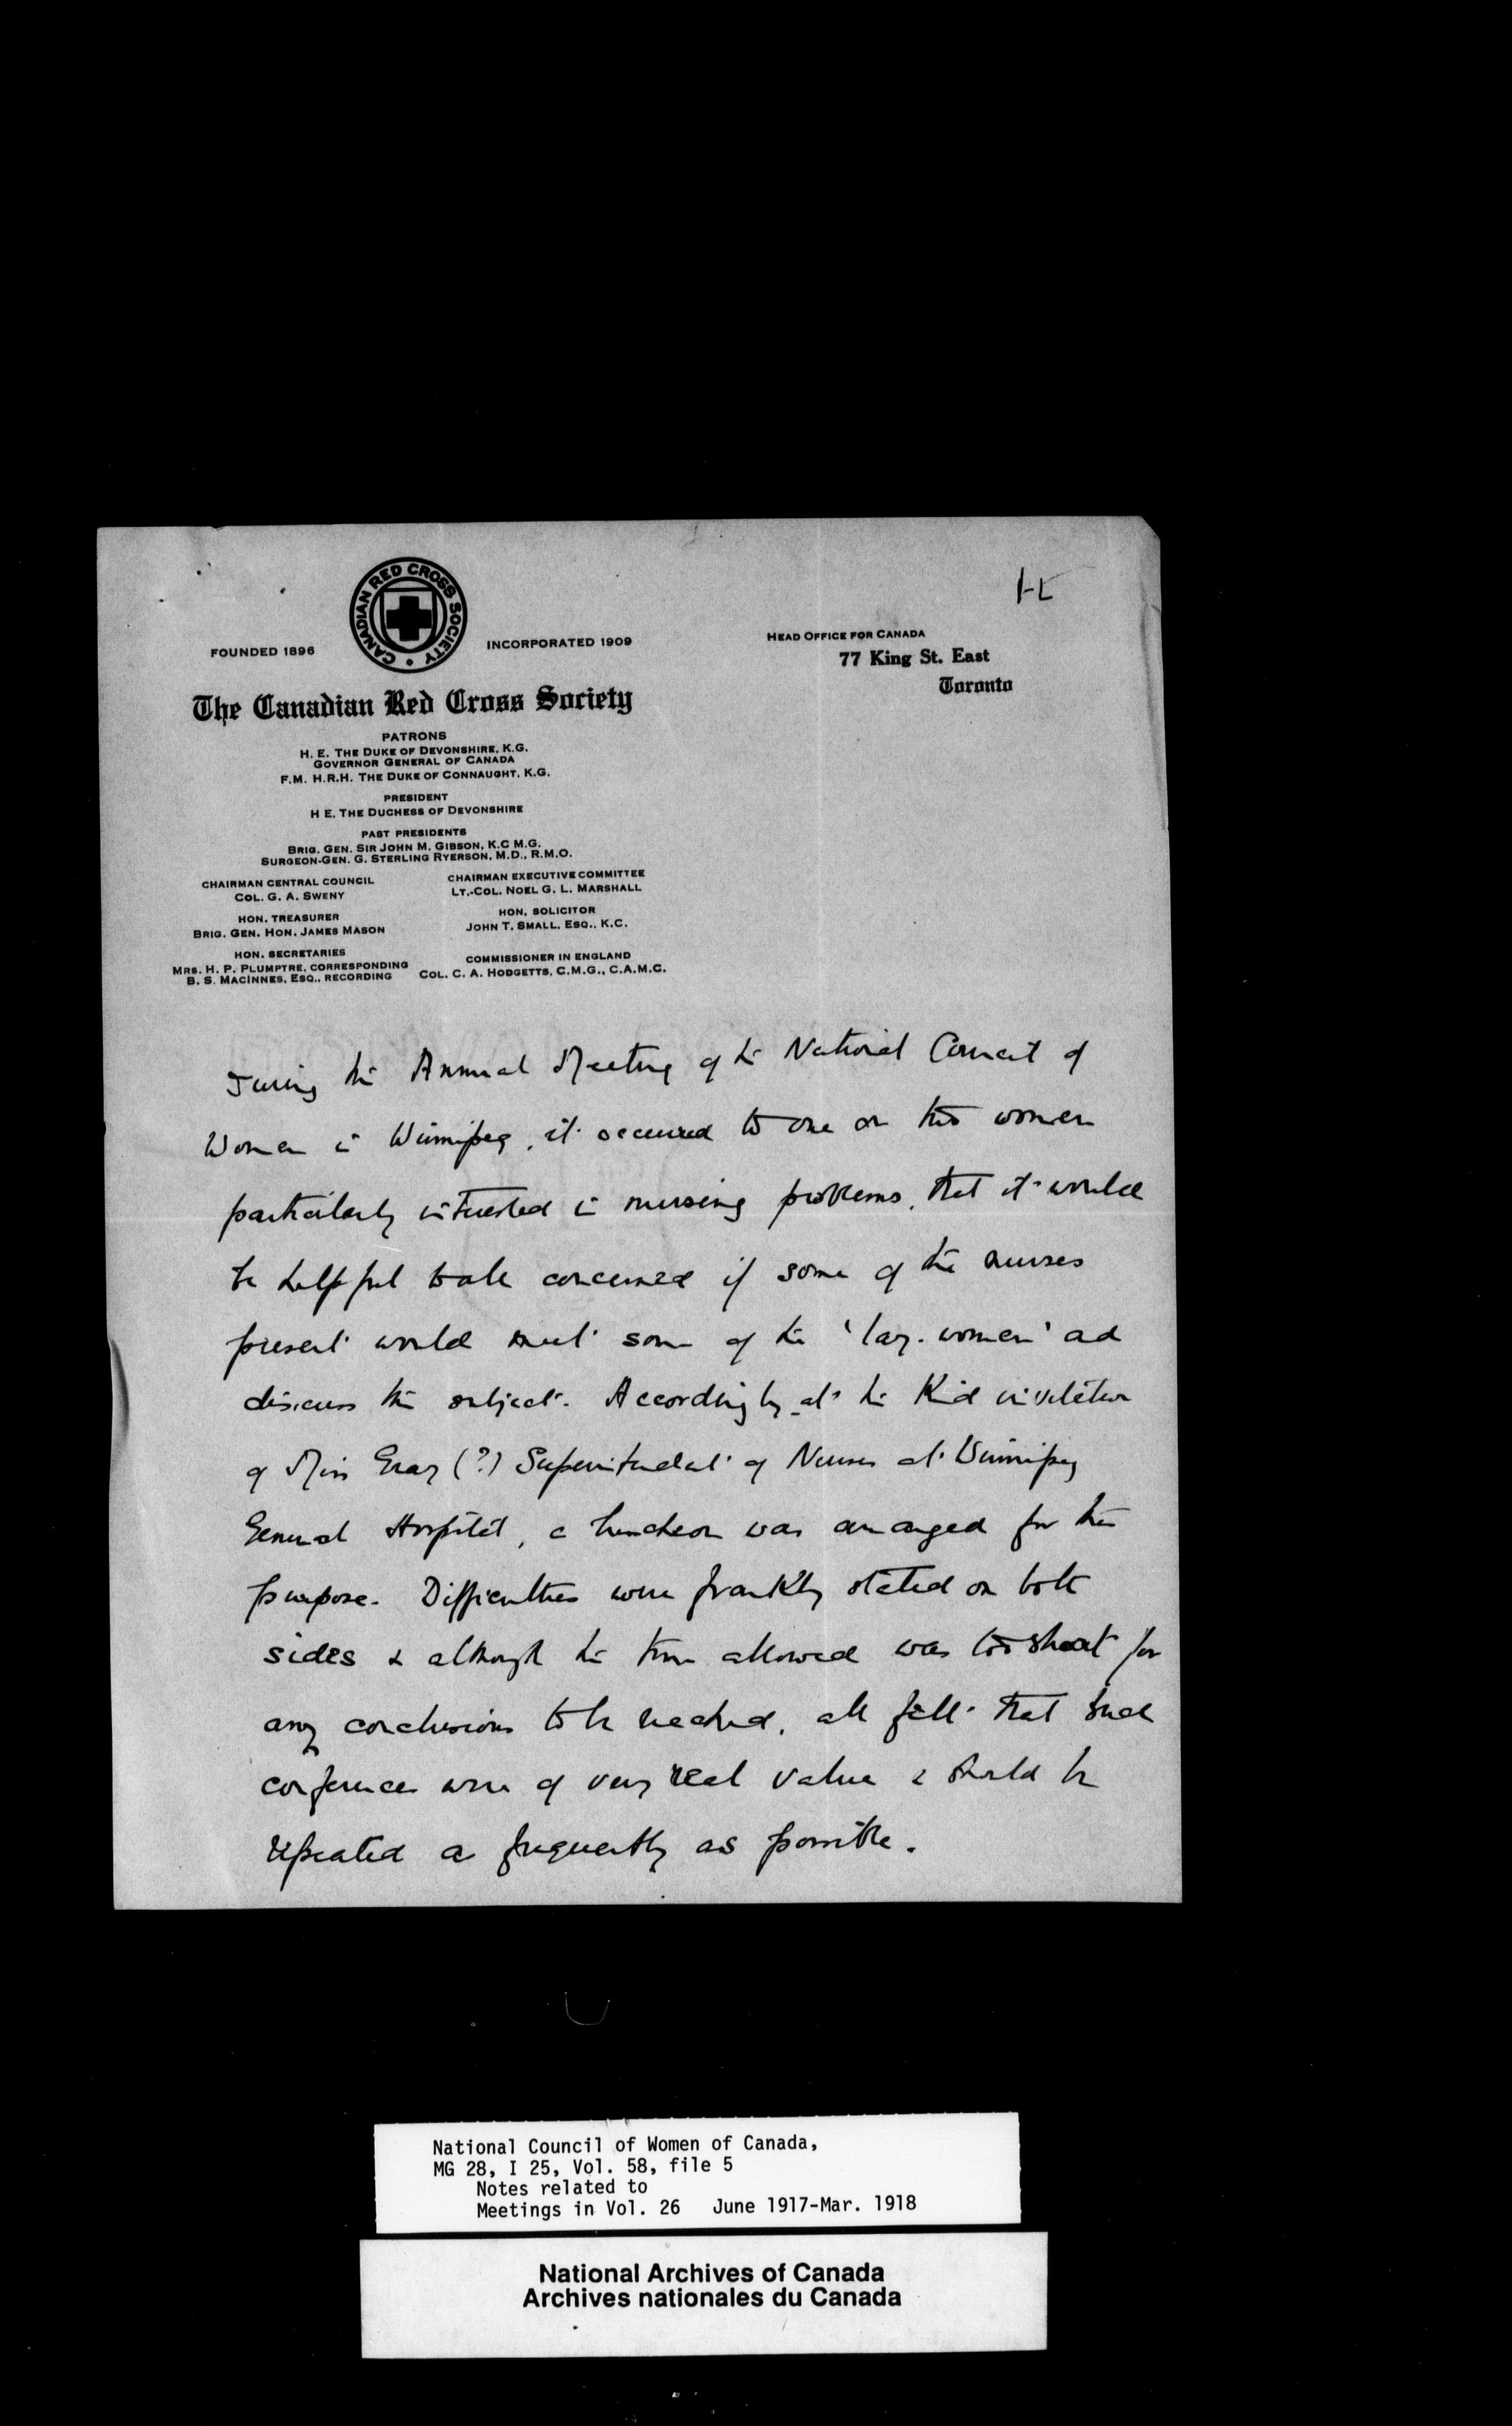 FOUNDED 1896
CANADIAN RED CROSS SOCIETY
INCORPORATED 1909
HEAD OFFICE FOR CANADA
77 King St. East
Toronto
The Canadian Red Cross Society
PATRONS
H. E. THE DUKE OF DEVONSHIRE, K.G.
GOVERNOR GENERAL OF CANADA
F.M. H.R.H. THE DUKE OF CONNAUGHT, K.G.
PRESIDENT
H E. THE DUCHESS OF DEVONSHIRE
PAST PRESIDENTS
BRIG. GEN. SIR JOHN M. GIBSON, K.C M.G.
SURGEON-GEN. G. STERLING RYERSON, M.D., R.M.O.
CHAIRMAN CENTRAL COUNCIL
COL. G. A. SWENY
CHAIRMAN EXECUTIVE COMMITTEE
LT.-COL. NOEL G. L. MARSHALL
HON. TREASURER
BRIG. GEN. HON. JAMES MASON
HON. SOLICITOR
JOHN T. SMALL, ESQ., K.C.
HON. SECRETARIES
MRS. H. P. PLUMPTRE, CORRESPONDING
B. S. MACINNES, ESQ., RECORDING
COMMISSIONER IN ENGLAND
COL. C. A. HODGETTS, C.M.G., C.A.M.C.
During the Annual Meeting of the National Council of
Women in Winnipeg, it occurred to one or two women
particularly interested in nursing problems, that it would
be helpful to all concerned if some of the nurses
present would meet some of the 'lay-women' and
discuss the subject. Accordingly, at the kind invitation
of Miss Gray (?) Superintendent of Nurses at Winnipeg
General Hospital, a luncheon was arranged for this
purpose. Difficulties were frankly stated on both
sides & although the time allowed was too short for
any conclusions to be reached, all felt that such
conferences were of very real value & should be
repeated as frequently as possible.
National Council of Women of Canada,
MG 28, I 25, Vol. 58, file 5
Notes related to
Meetings in Vol. 26 June 1917-Mar. 1918
National Archives of Canada
Archives nationales du Canada